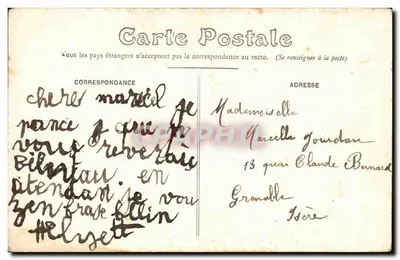 Carte Postale
Tous les pays étrangers n'acceptent pas la correspondance au recto. (Se renseigner à la poste)
CORRESPONDANCE
ADRESSE
chere marcel je
pance que
vous reverai
en
atendan je vou
zen brase bien
Mademoiselle
Marcelle Jourdan
13 quai Claude Bernard
Grenoble
Isère